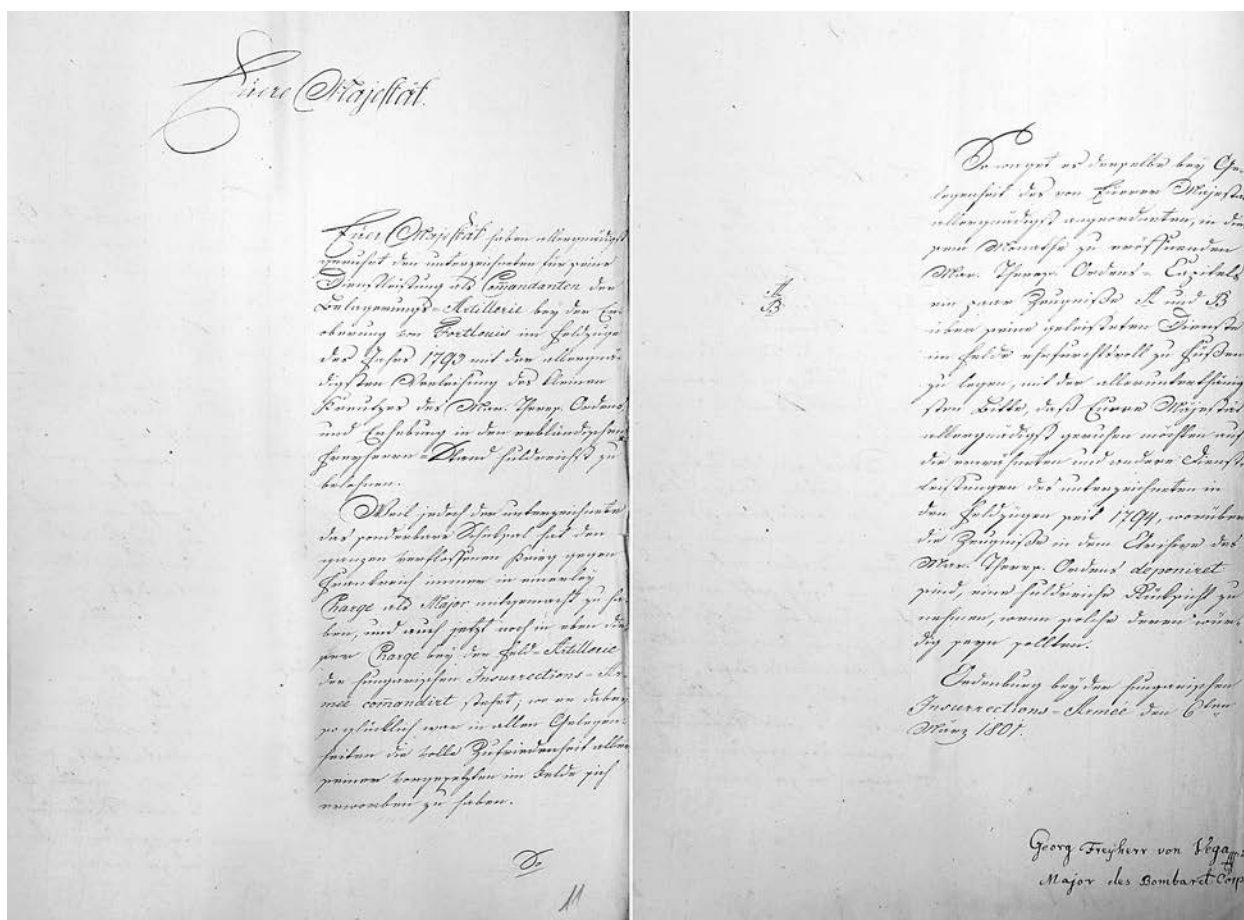 Eüere Majestät.
Eüer Majestät haben allergnädigst
geruhet den unterzeichneten für seine
Dienstleistung als Comandanten der
Belagerungs-Artillerie bey der Er-
oberung von Fortlouis im Feldzuge
des Jahrs 1793 mit der allergnä-
digsten Verleihung des kleinen
Kreutzes des Mar. Theres. Ordens,
und Erhebung in den erbländischen
Freyherrn-Stand huldreichst zu
belohnen.
Weil jedoch der unterzeichnete
das sonderbare Schiksal hat den
ganzen verflossenen Krieg gegen
Frankreich immer in einerley
Charge als Major mitgemacht zu ha-
ben, und auch jetzt noch in eben die-
ser Charge bey der Feld-Artillerie
der hungarischen Insurrections-Ar-
mée comandirt stehet; wo er dabey
so glücklich war in allen Gelegen-
heiten die volle Zufriedenheit aller
seiner Vorgesetzten im Felde sich
erworben zu haben.
So
11
So waget es derselbe bey Ge-
legenheit des von Eüerer Majestät
allergnädigst angeordneten, in die-
sem Monathe zu eröffnenden
Mar. Theres. Ordens-Capitels
A
B
ein paar Zeugniße A und B
über seine geleisteten Dienste
im Felde ehrfurchtsvoll zu Füßen
zu legen, mit der allerunterthänig-
sten Bitte, daß Eüere Majestät
allergnädigst geruhen möchten auf
die erwähnten und andere Dienst-
leistungen des unterzeichneten in
den Feldzügen seit 1794, worüber
die Zeugniße in dem Archive des
Mar. Theres. Ordens deponiret
sind, eine huldreiche Rüksicht zu
nehmen, wenn solche deren wür-
dig seyn sollten.
Oedenburg bey der hungarischen
Insurrections-Armée den 6ten
März 1801.
Georg Freyherr von Vega
Major des Bombard. Corps